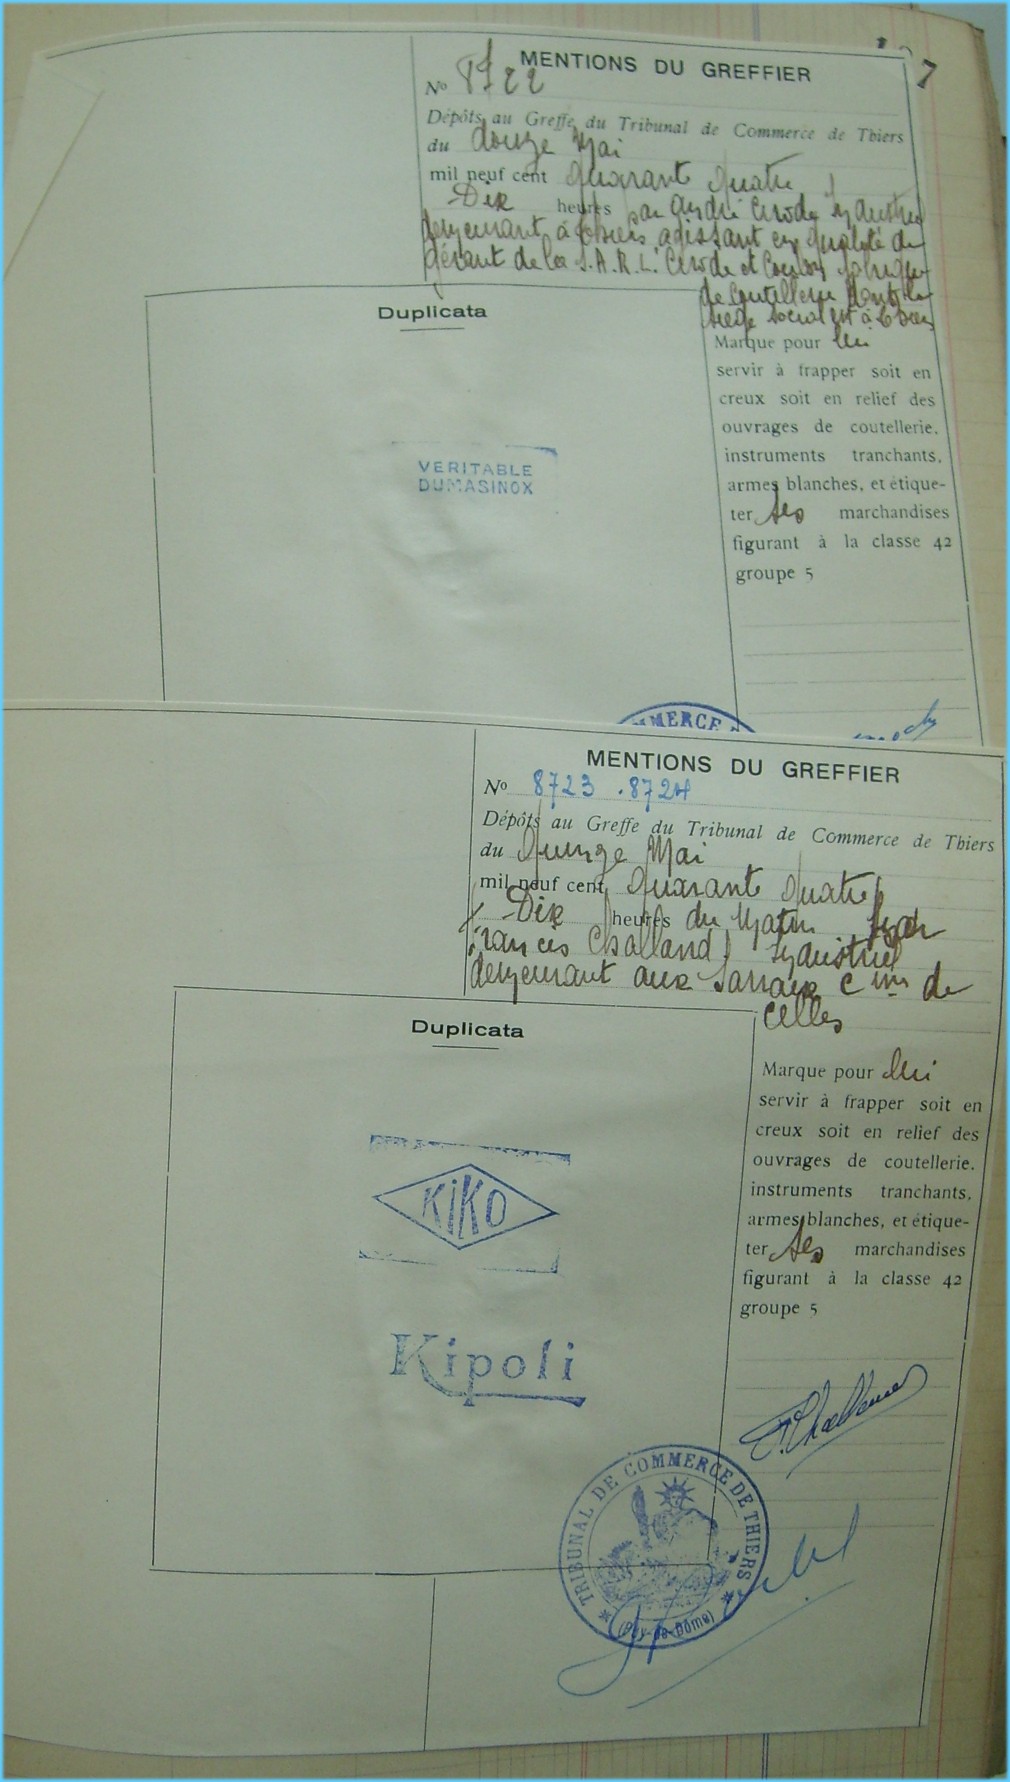 7
MENTIONS DU GREFFIER
No 8722
Dépôts au Greffe du Tribunal de Commerce de Thiers
du douze Mai
mil neuf cent quarante quatre
Dix heures par André Cirode Industriel
demeurant à Thiers agissant en qualité de
gérant de la S.A.R.L. Cirode et
de Coutellerie dont le
siège social est à Thiers
Duplicata
Marque pour lui
servir à frapper soit en
creux soit en relief des
ouvrages de coutellerie,
instruments tranchants,
armes blanches, et étique-
ter ses marchandises
figurant à la classe 42
groupe 5
VERITABLE
DUMASINOX
MMERCE D
MENTIONS DU GREFFIER
No 8723 . 8724
Dépôts au Greffe du Tribunal de Commerce de Thiers
du Quinze Mai
mil neuf cent quarante quatre
Dix heures du Matin par
Francis Challand Industriel
demeurant aux Sarraix Cne de
Celles
Duplicata
Marque pour lui
servir à frapper soit en
creux soit en relief des
ouvrages de coutellerie.
instruments tranchants,
armes blanches, et étique-
ter ses marchandises
figurant à la classe 42
groupe 5
KiKO
Kipoli
TRIBUNAL DE COMMERCE DE THIERS
(Puy-de-Dôme)